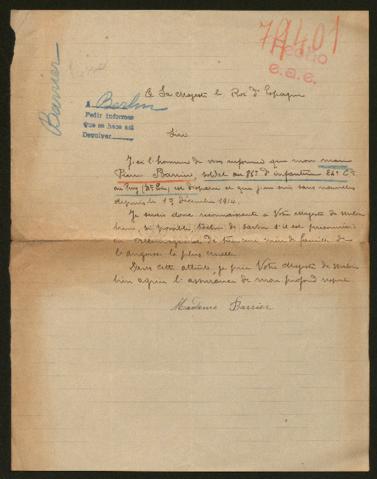 79401
Pedido
e.a.e.
Barrier
A Berlin
Pedir informes
que se hace asi
Devolver
A Sa Majesté le Roi d'Espagne
Sire
J'ai l'honneur de vous informer que mon mari
Pierre Barrier, soldat au 86e d'infanterie 24e Cie
au Puy (Hte Loire) est disparu et que je suis sans nouvelles
depuis le 13 décembre 1914.
Je serais donc reconnaissante à Votre Majesté de vouloir
bien, si possible, tâcher de savoir s'il est prisonnier
en Allemagne de
l'angoisse la plus cruelle.
Dans cette attente, je prie Votre Majesté de vouloir
bien agréer l'assurance de mon profond respect
Madame Barrier